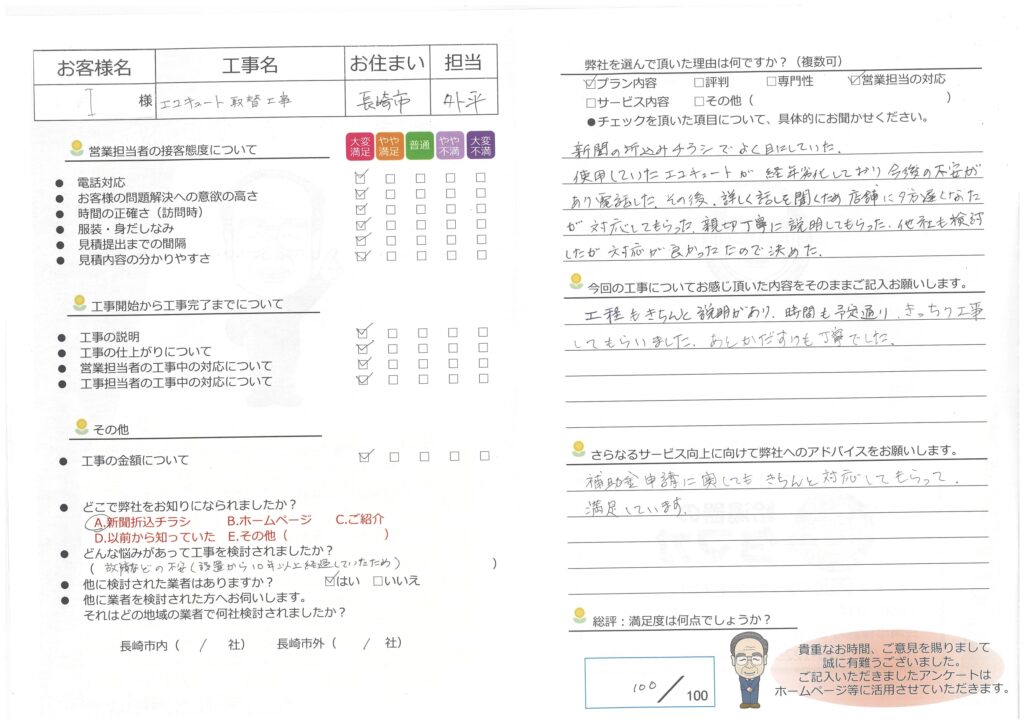 お客様名 工事名 お住まい 担当
I 様 エコキュート取替工事 長崎市 外平
営業担当者の接客態度について 大変満足 やや満足 普通 やや不満 大変不満
● 電話対応 ☑ □ □ □ □
● お客様の問題解決への意欲の高さ ☑ □ □ □ □
● 時間の正確さ（訪問時） ☑ □ □ □ □
● 服装・身だしなみ ☑ □ □ □ □
● 見積提出までの間隔 ☑ □ □ □ □
● 見積内容の分かりやすさ ☑ □ □ □ □
工事開始から工事完了までについて
● 工事の説明 ☑ □ □ □ □
● 工事の仕上がりについて ☑ □ □ □ □
● 営業担当者の工事中の対応について ☑ □ □ □ □
● 工事担当者の工事中の対応について ☑ □ □ □ □
その他
● 工事の金額について ☑ □ □ □ □
● どこで弊社をお知りになられましたか？
A.新聞折込チラシ B.ホームページ C.ご紹介
D.以前から知っていた E.その他（ ）
● どんな悩みがあって工事を検討されましたか？
（ 故障などの不安(設置から10年以上経過していたため) ）
● 他に検討された業者はありますか？ ☑はい □いいえ
● 他に業者を検討された方へお伺いします。
それはどの地域の業者で何社検討されましたか？
長崎市内（ / 社） 長崎市外（ / 社）
弊社を選んで頂いた理由は何ですか？（複数可）
☑プラン内容 □評判 □専門性 ☑営業担当の対応
□サービス内容 □その他（ ）
●チェックを頂いた項目について、具体的にお聞かせください。
新聞の折込みチラシでよく目にしていた。
使用していたエコキュートが経年劣化しており今後の不安が
あり電話した。その後、詳しく話しを聞くため店舗に夕方遅くなった
が対応してもらった。親切丁寧に説明してもらった。他社も検討
したが対応が良かったたので決めた。
今回の工事についてお感じ頂いた内容をそのままご記入お願いします。
工程もきちんと説明があり、時間も予定通り、きっちり工事
してもらいました。あとかたずけも丁寧でした。
さらなるサービス向上に向けて弊社へのアドバイスをお願いします。
補助金申請に関してもきちんと対応してもらって、
満足しています。
総評：満足度は何点でしょうか？
100/100
貴重なお時間、ご意見を賜りまして
誠に有難うございました。
ご記入いただきましたアンケートは
ホームページ等に活用させていただきます。